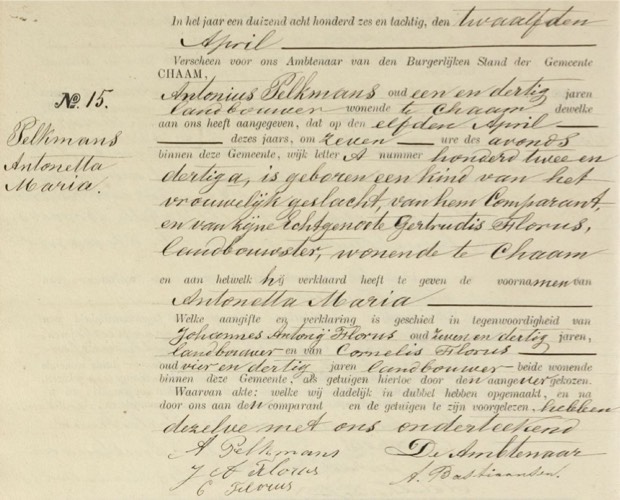 In het jaar een duizend acht honderd zes en tachtig, den twaalfden
April
Verscheen voor ons Ambtenaar van den Burgerlijken Stand der Gemeente
CHAAM,
No. 15.
Pelkmans
Antonetta
Maria.
Antonius Pelkmans oud een en dertig jaren
landbouwer wonende te Chaam dewelke
aan ons heeft aangegeven, dat op den elfden April
dezes jaars, om zeven ure des avonds
binnen deze Gemeente, wijk letter A nummer honderd twee en
dertig a, is geboren een kind van het
vrouwelijk geslacht, van hem Comparant,
en van zijne Echtgenoote Gertrudis Florus,
landbouwster, wonende te Chaam
en aan hetwelk hij verklaard heeft te geven de voornamen van
Antonetta Maria
Welke aangifte en verklaring is geschied in tegenwoordigheid van
Johannes Antonij Florus oud zeven en dertig jaren,
landbouwer en van Cornelis Florus
oud vier en dertig jaren landbouwer beide wonende
binnen deze Gemeente, als getuigen hiertoe door den aangever gekozen.
Waarvan akte: welke wij dadelijk in dubbel hebben opgemaakt, en na
door ons aan den comparant en de getuigen te zijn voorgelezen, hebben
dezelve met ons onderteekend
A Pelkmans
J A Florus
C Florus
De Ambtenaar
A. Bastiaansen.